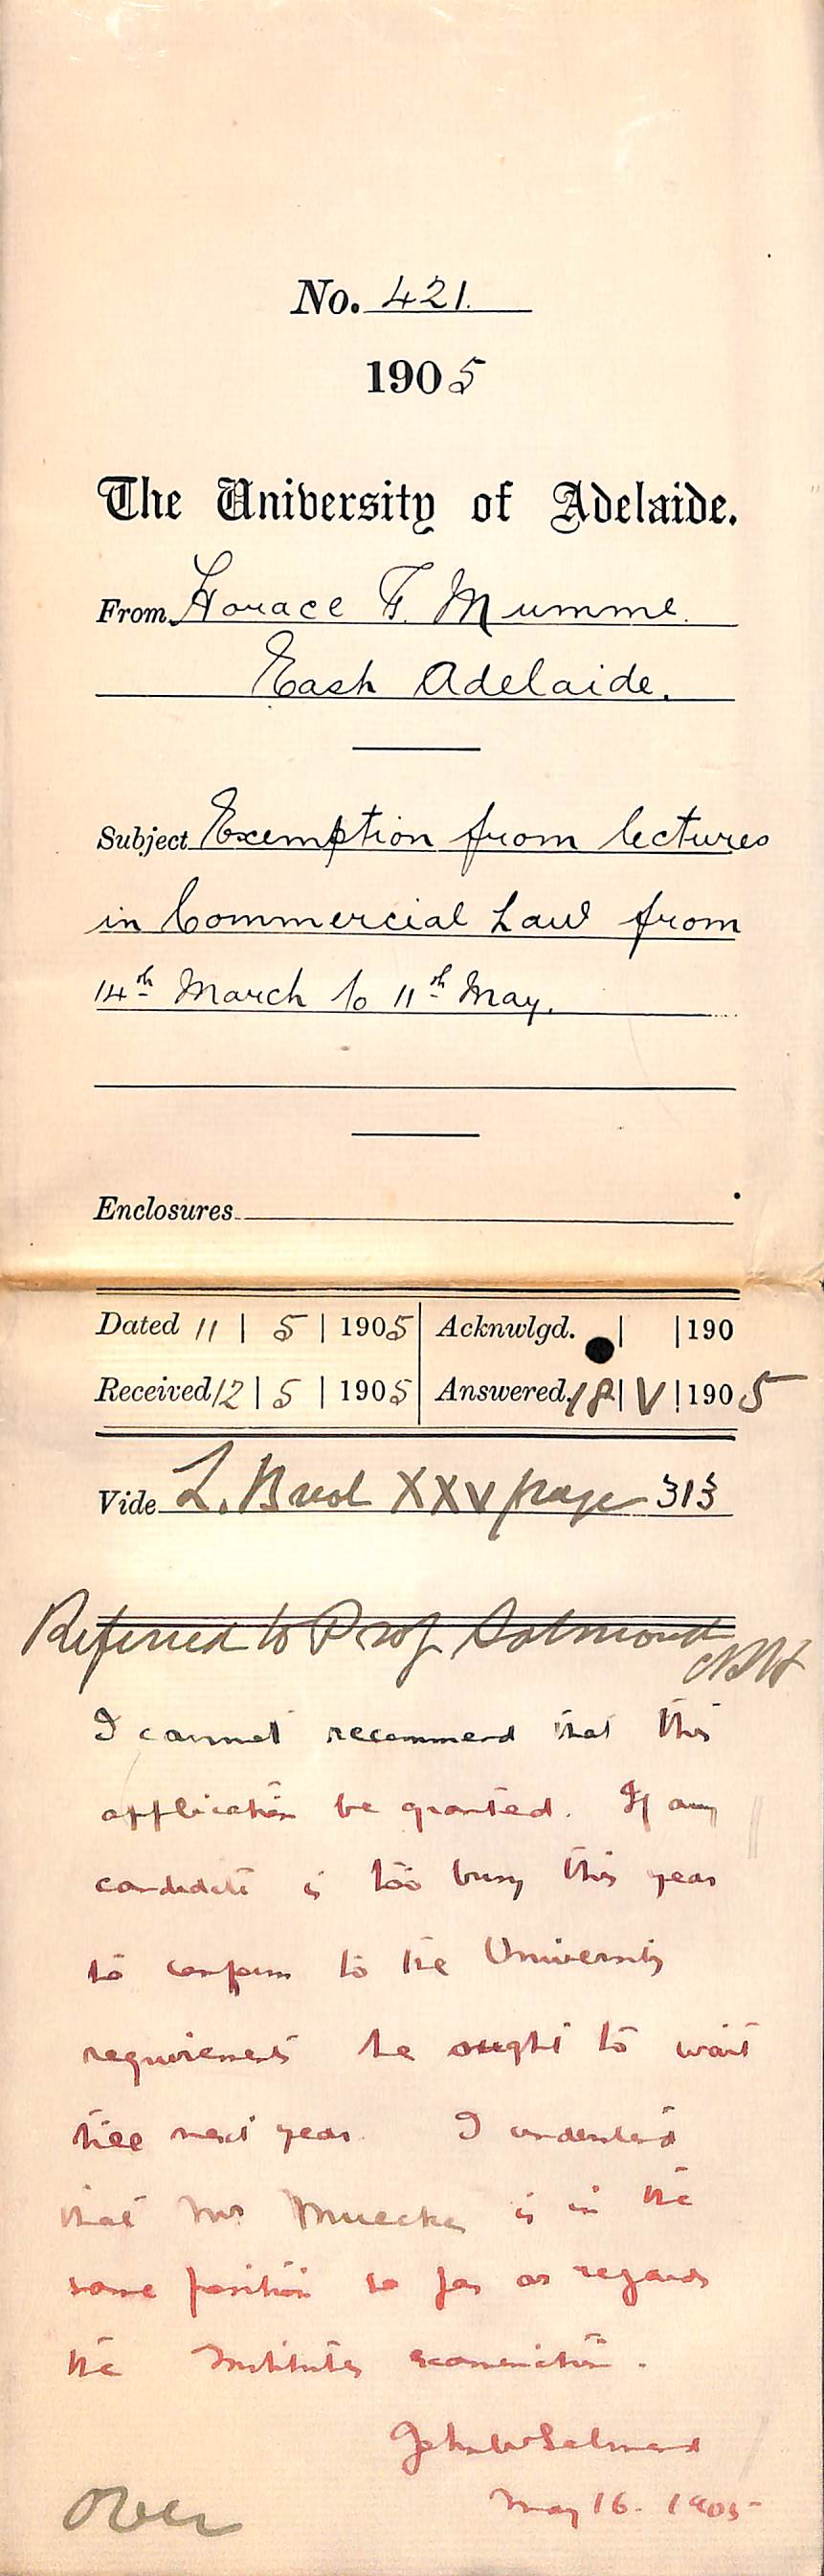 No. 421.
1905
The University of Adelaide.
From Horace F. Mumme.
East Adelaide.
Subject Exemption from lectures
in Commercial Law from
14th March to 11th May.
Enclosures
Dated 11 | 5 | 1905 Acknwlgd. | | 190
Received 12 | 5 | 1905 Answered 18 | V | 1905
Vide L. Book XXV page 313
Referred to Prof Salmond
I cannot recommend that this
application be granted. If any
candidate is too busy this year
to conform to the University
requirements he ought to wait
till next year. I understand
that Mr Muecke is in the
same position so far as regards
the Institutes examination.
John W Salmond
May 16. 1905
Over